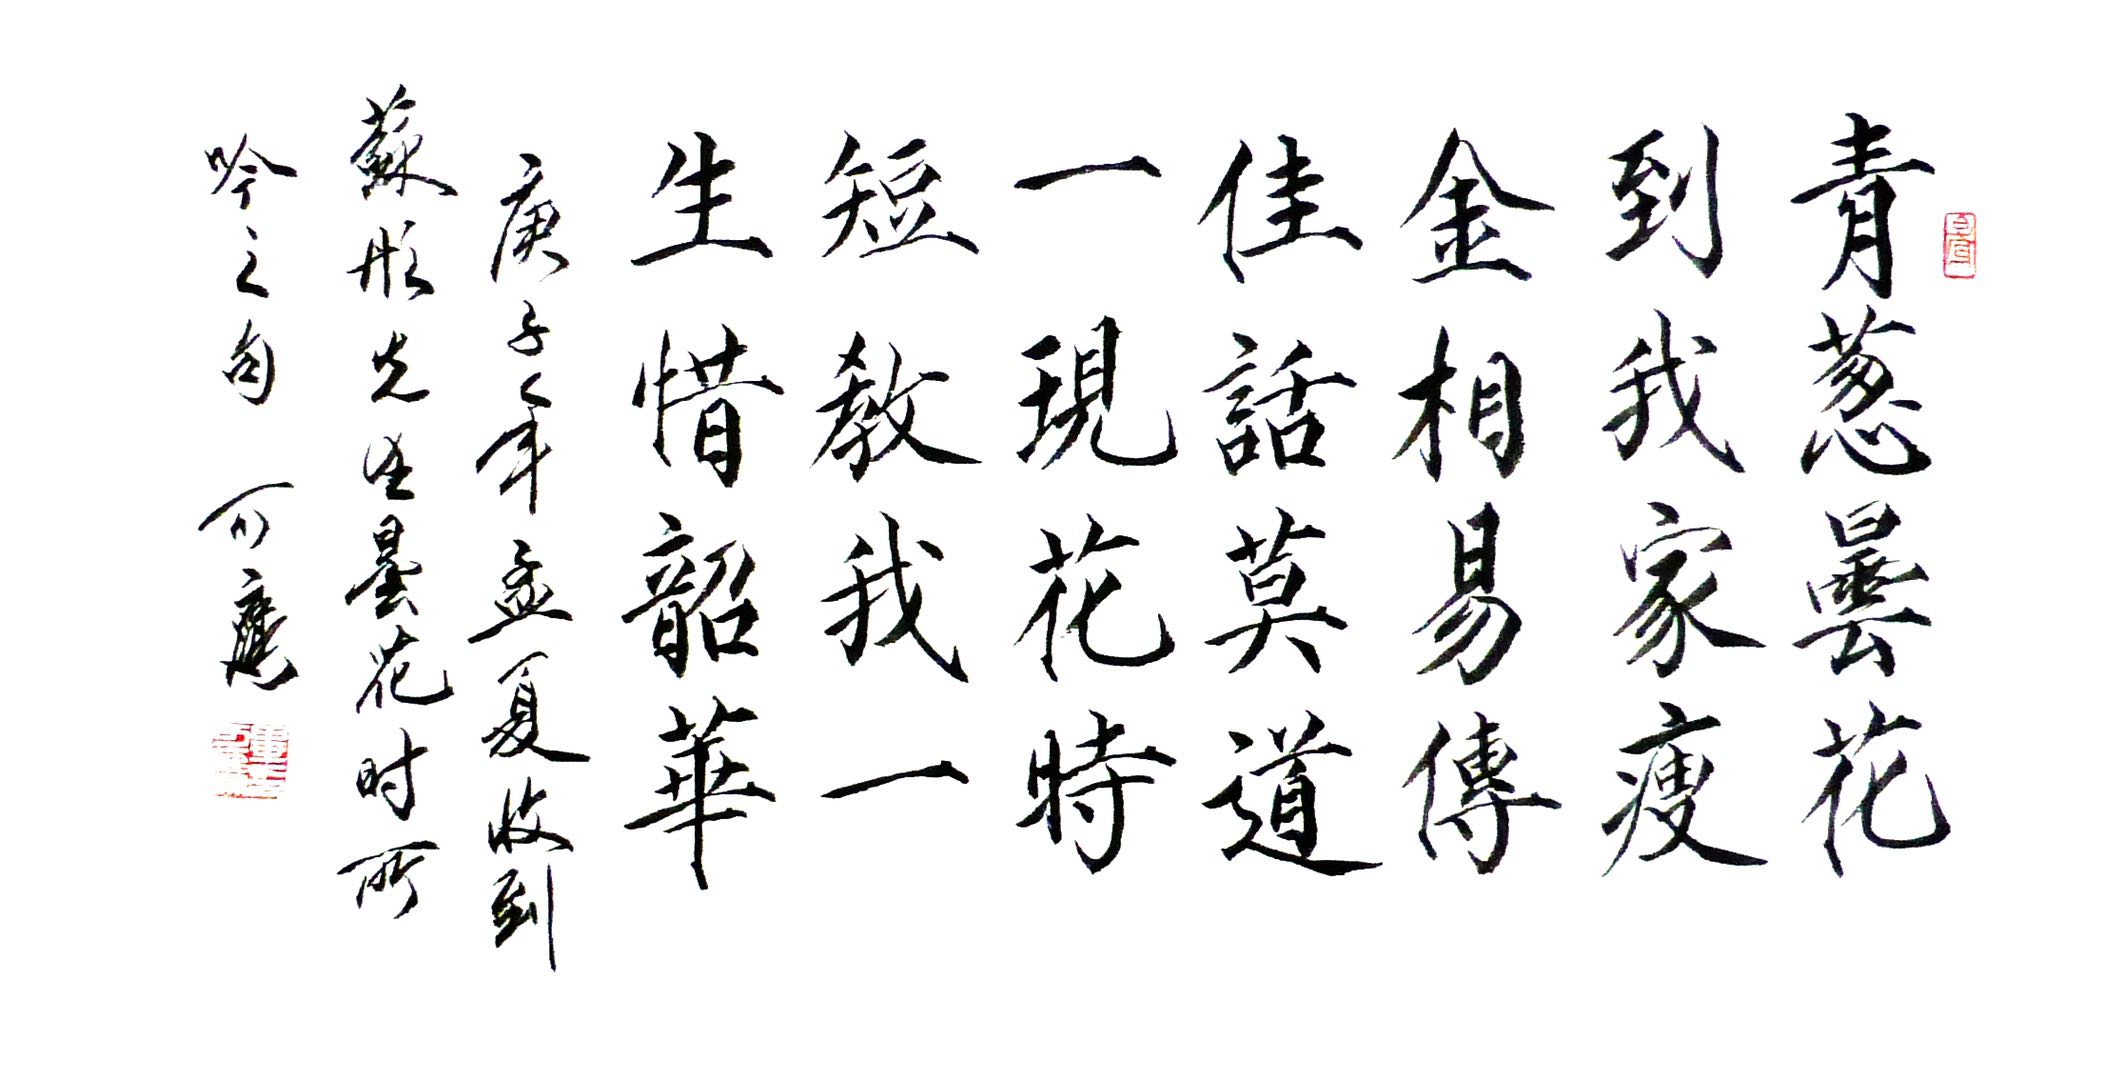 青葱曇花
到我家瘦
金相易傳
佳話莫道
一現花時
短教我一
生惜韶華
庚子年孟夏收到
蘇彤先生曇花时所
吟之句 可